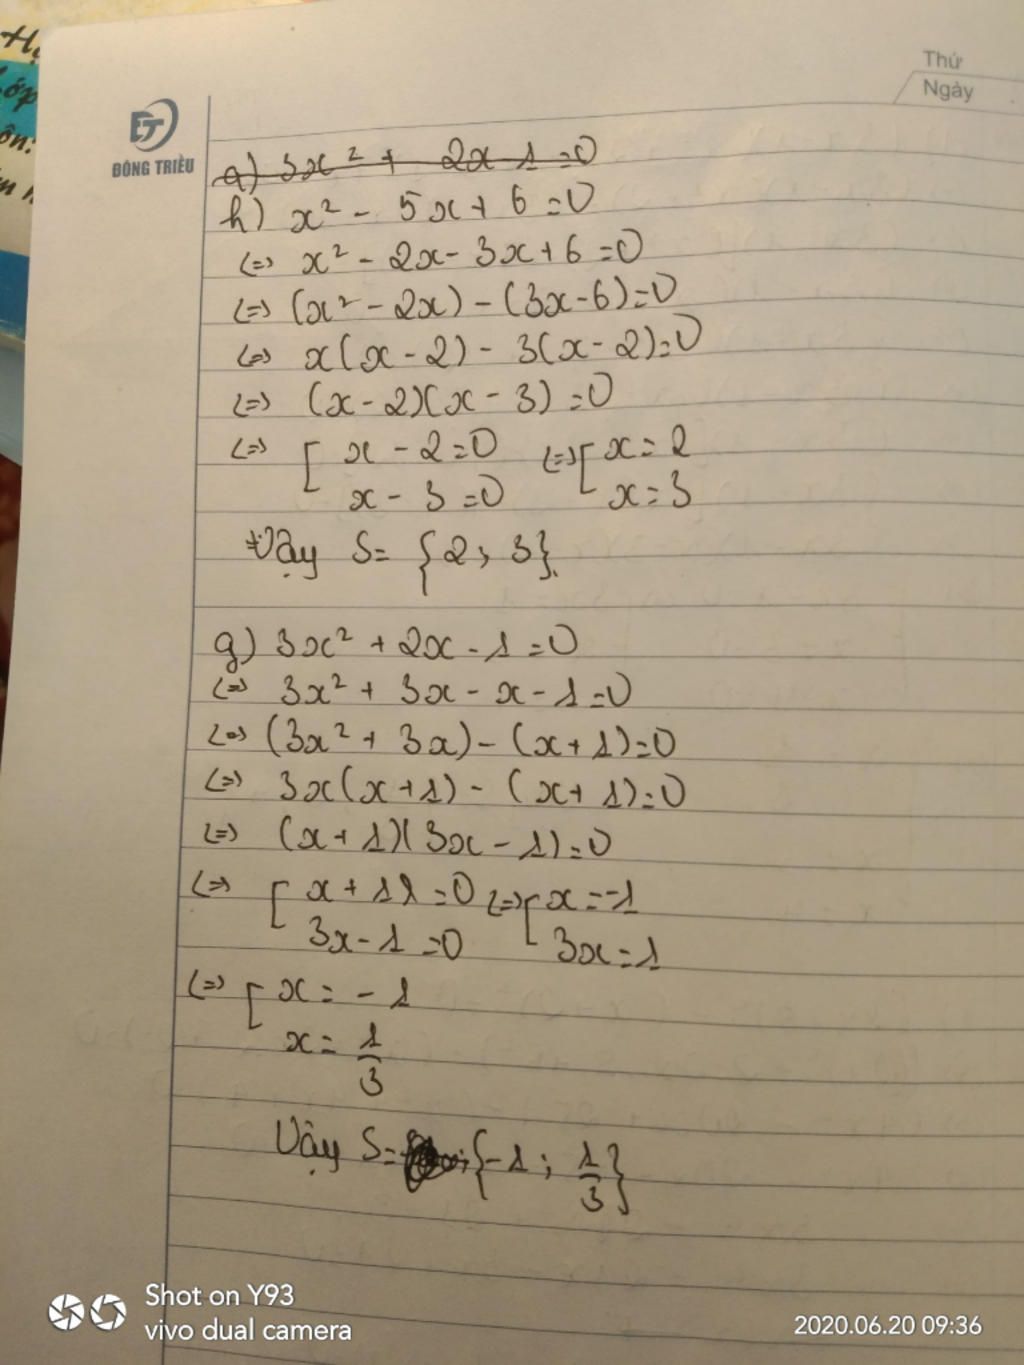 Thứ
Ngày
ĐT
ĐÔNG TRIỀU
g) 3x² + 2x - 1 = 0
h) x² - 5x + 6 = 0
<=> x² - 2x - 3x + 6 = 0
<=> (x² - 2x) - (3x - 6) = 0
<=> x(x - 2) - 3(x - 2) = 0
<=> (x - 2)(x - 3) = 0
<=> [ x - 2 = 0 <=> [ x = 2
x - 3 = 0 x = 3
Vậy S = {2; 3}.
g) 3x² + 2x - 1 = 0
<=> 3x² + 3x - x - 1 = 0
<=> (3x² + 3x) - (x + 1) = 0
<=> 3x(x + 1) - (x + 1) = 0
<=> (x + 1)(3x - 1) = 0
<=> [ x + 1 = 0 <=> [ x = -1
3x - 1 = 0 3x = 1
<=> [ x = -1
x = 1/3
Vậy S = {-1; 1/3}
Shot on Y93
vivo dual camera
2020.06.20 09:36